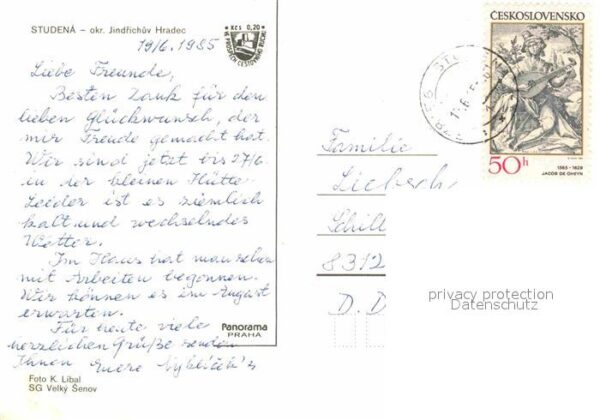 STUDENÁ – okr. Jindřichův Hradec
19/6.1985
Liebe Freunde,
Besten Dank für den
lieben Glückwunsch, der
mir Freude gemacht hat.
Wir sind jetzt bis 27/6.
in der kleinen Hütte.
Leider ist es ziemlich
kalt und wechselndes
Wetter.
Im Haus hat man schon
mit Arbeiten begonnen.
Wir können es im August
erwarten.
Für heute viele
herzlichen Grüße senden
Ihnen Euere
Foto K. Libal
SG Velký Šenov
KČS 0,20
Panorama
PRAHA
ČESKOSLOVENSKO
50h
1565-1629
JACOB DE GHEYN
Familie
8312
D.D
privacy protection
Datenschutz